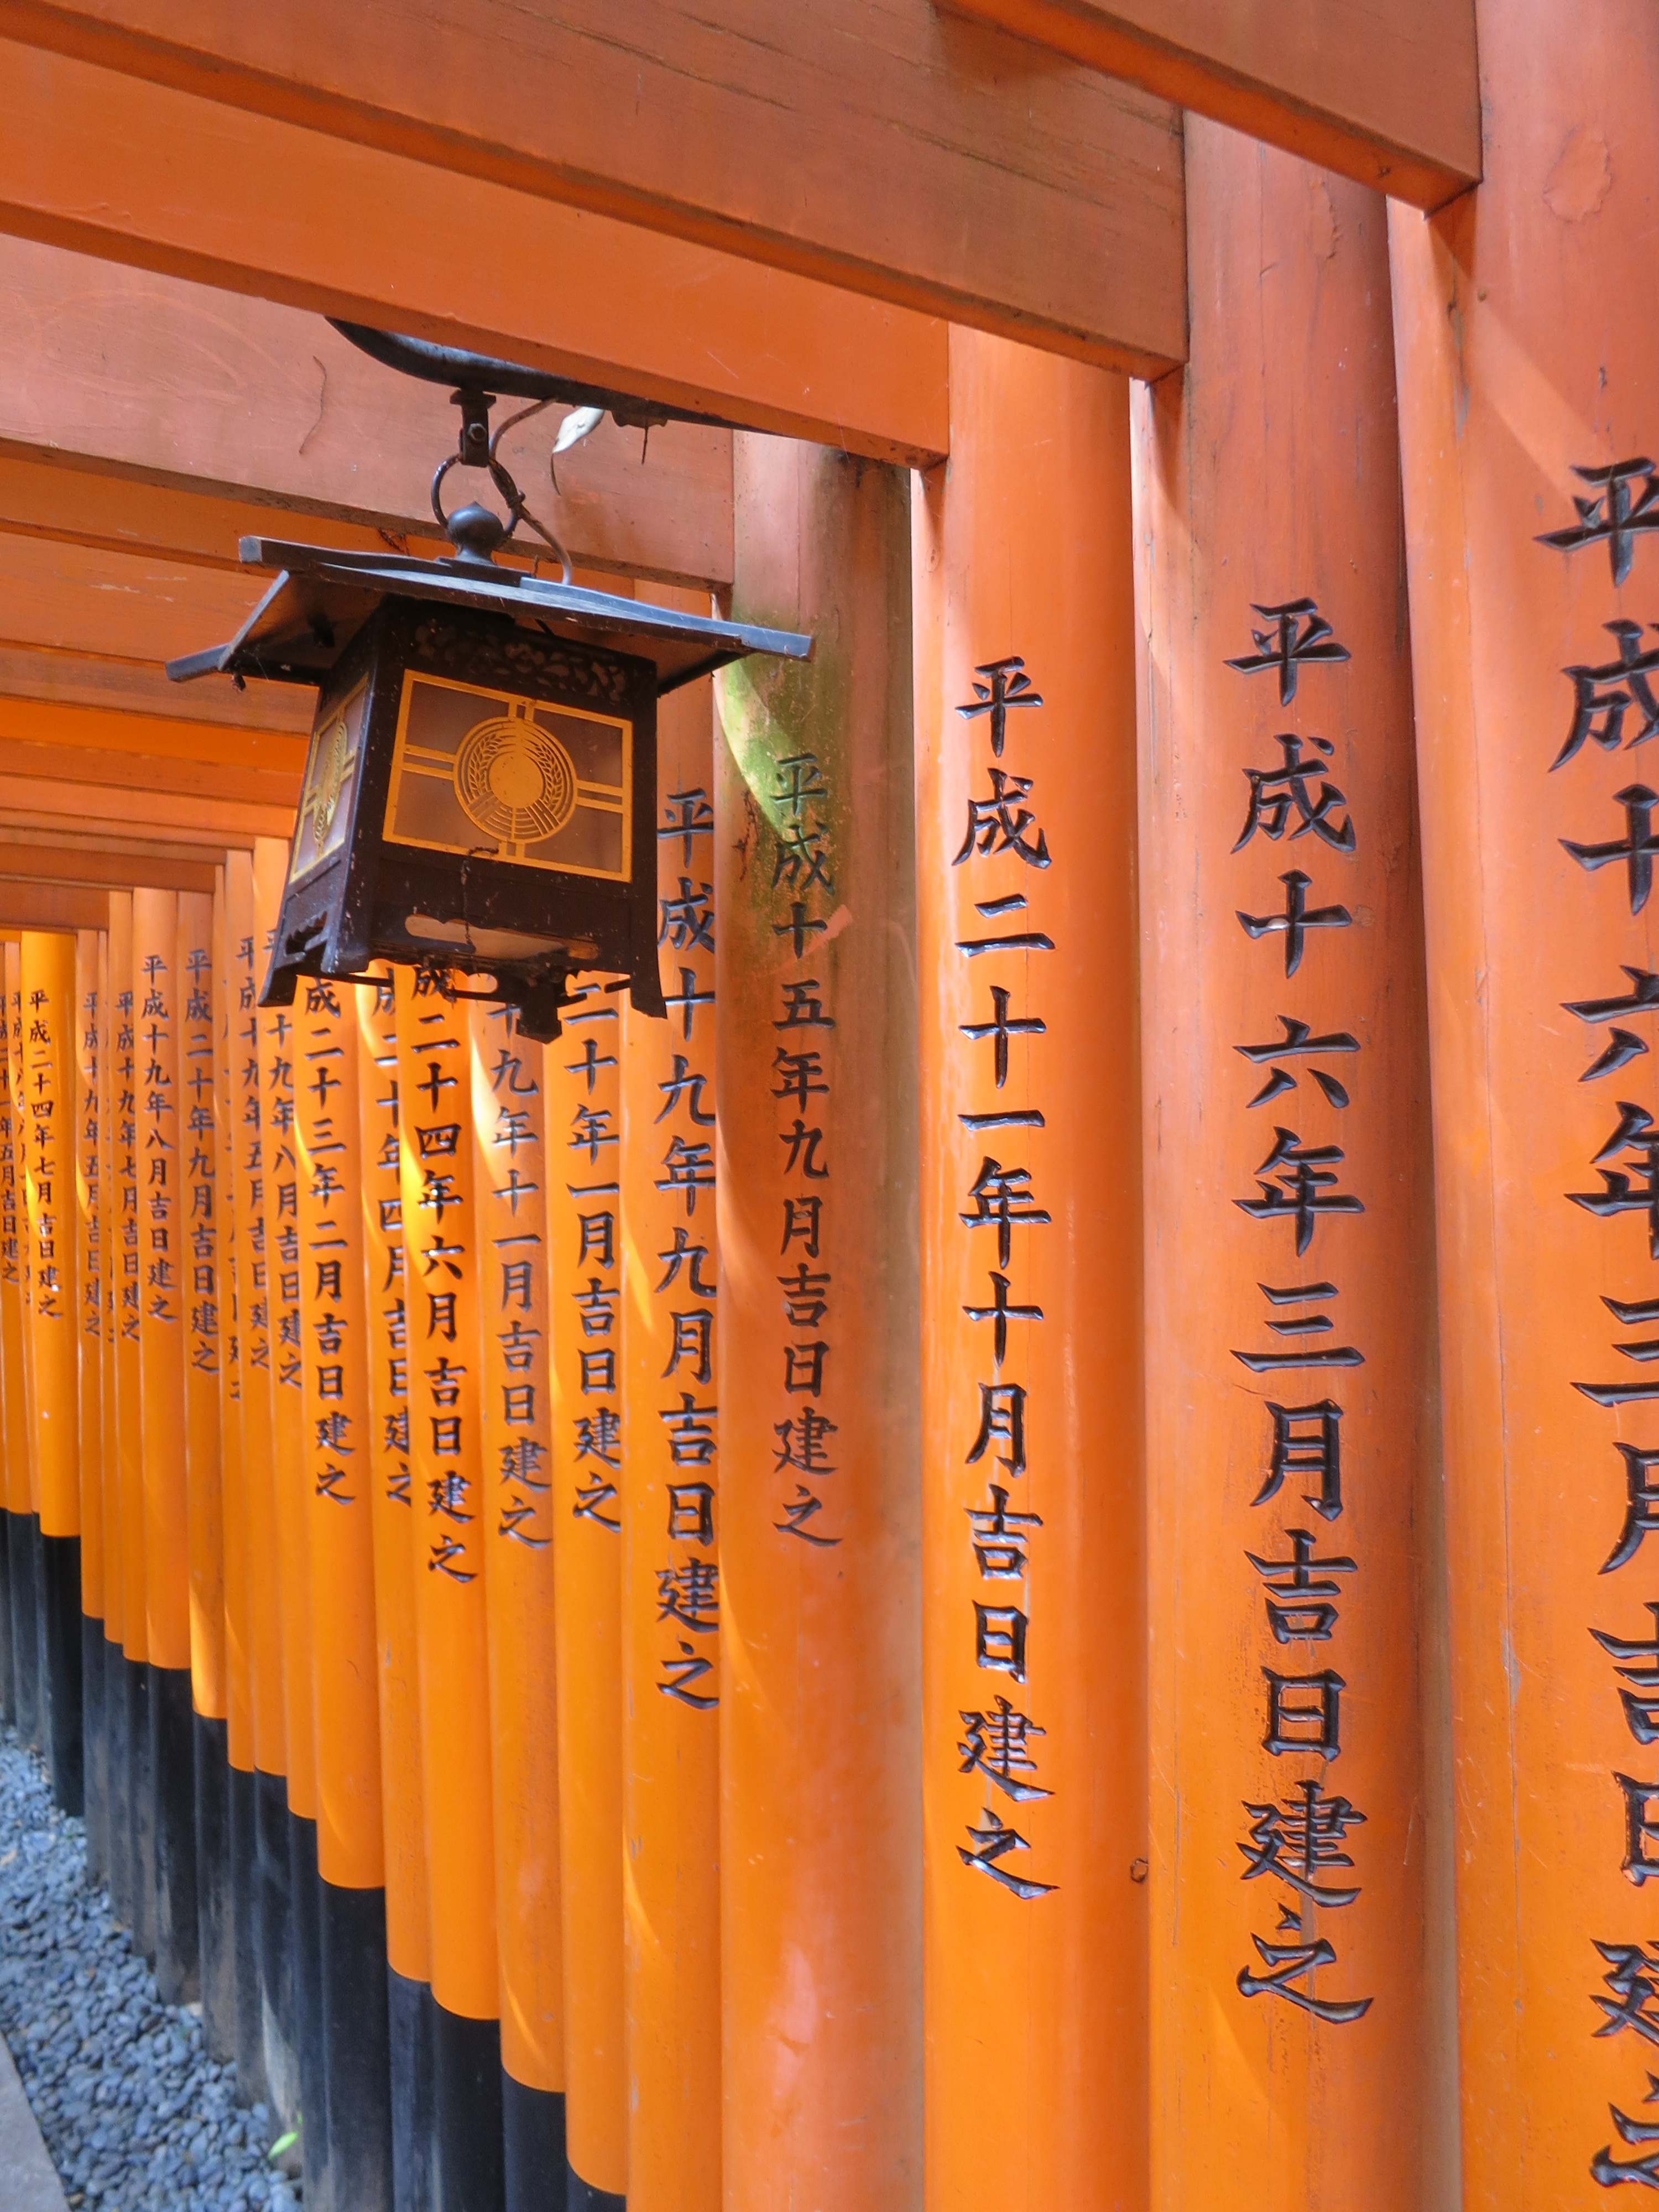 平成十六年三月吉日建之
平成十六年三月吉日建之
平成二十一年十月吉日建之
平成十五年九月吉日建之
平成十九年九月吉日建之
二十年一月吉日建之
十九年十一月吉日建之
成二十四年六月吉日建之
年四月吉日建之
成二十三年二月吉日建之
十九年八月吉日建之
平成二十年九月吉日建之
平成十九年八月吉日建之
平成十九年七月吉日建之
平成十九年五月吉日建之
平成二十四年七月吉日建之